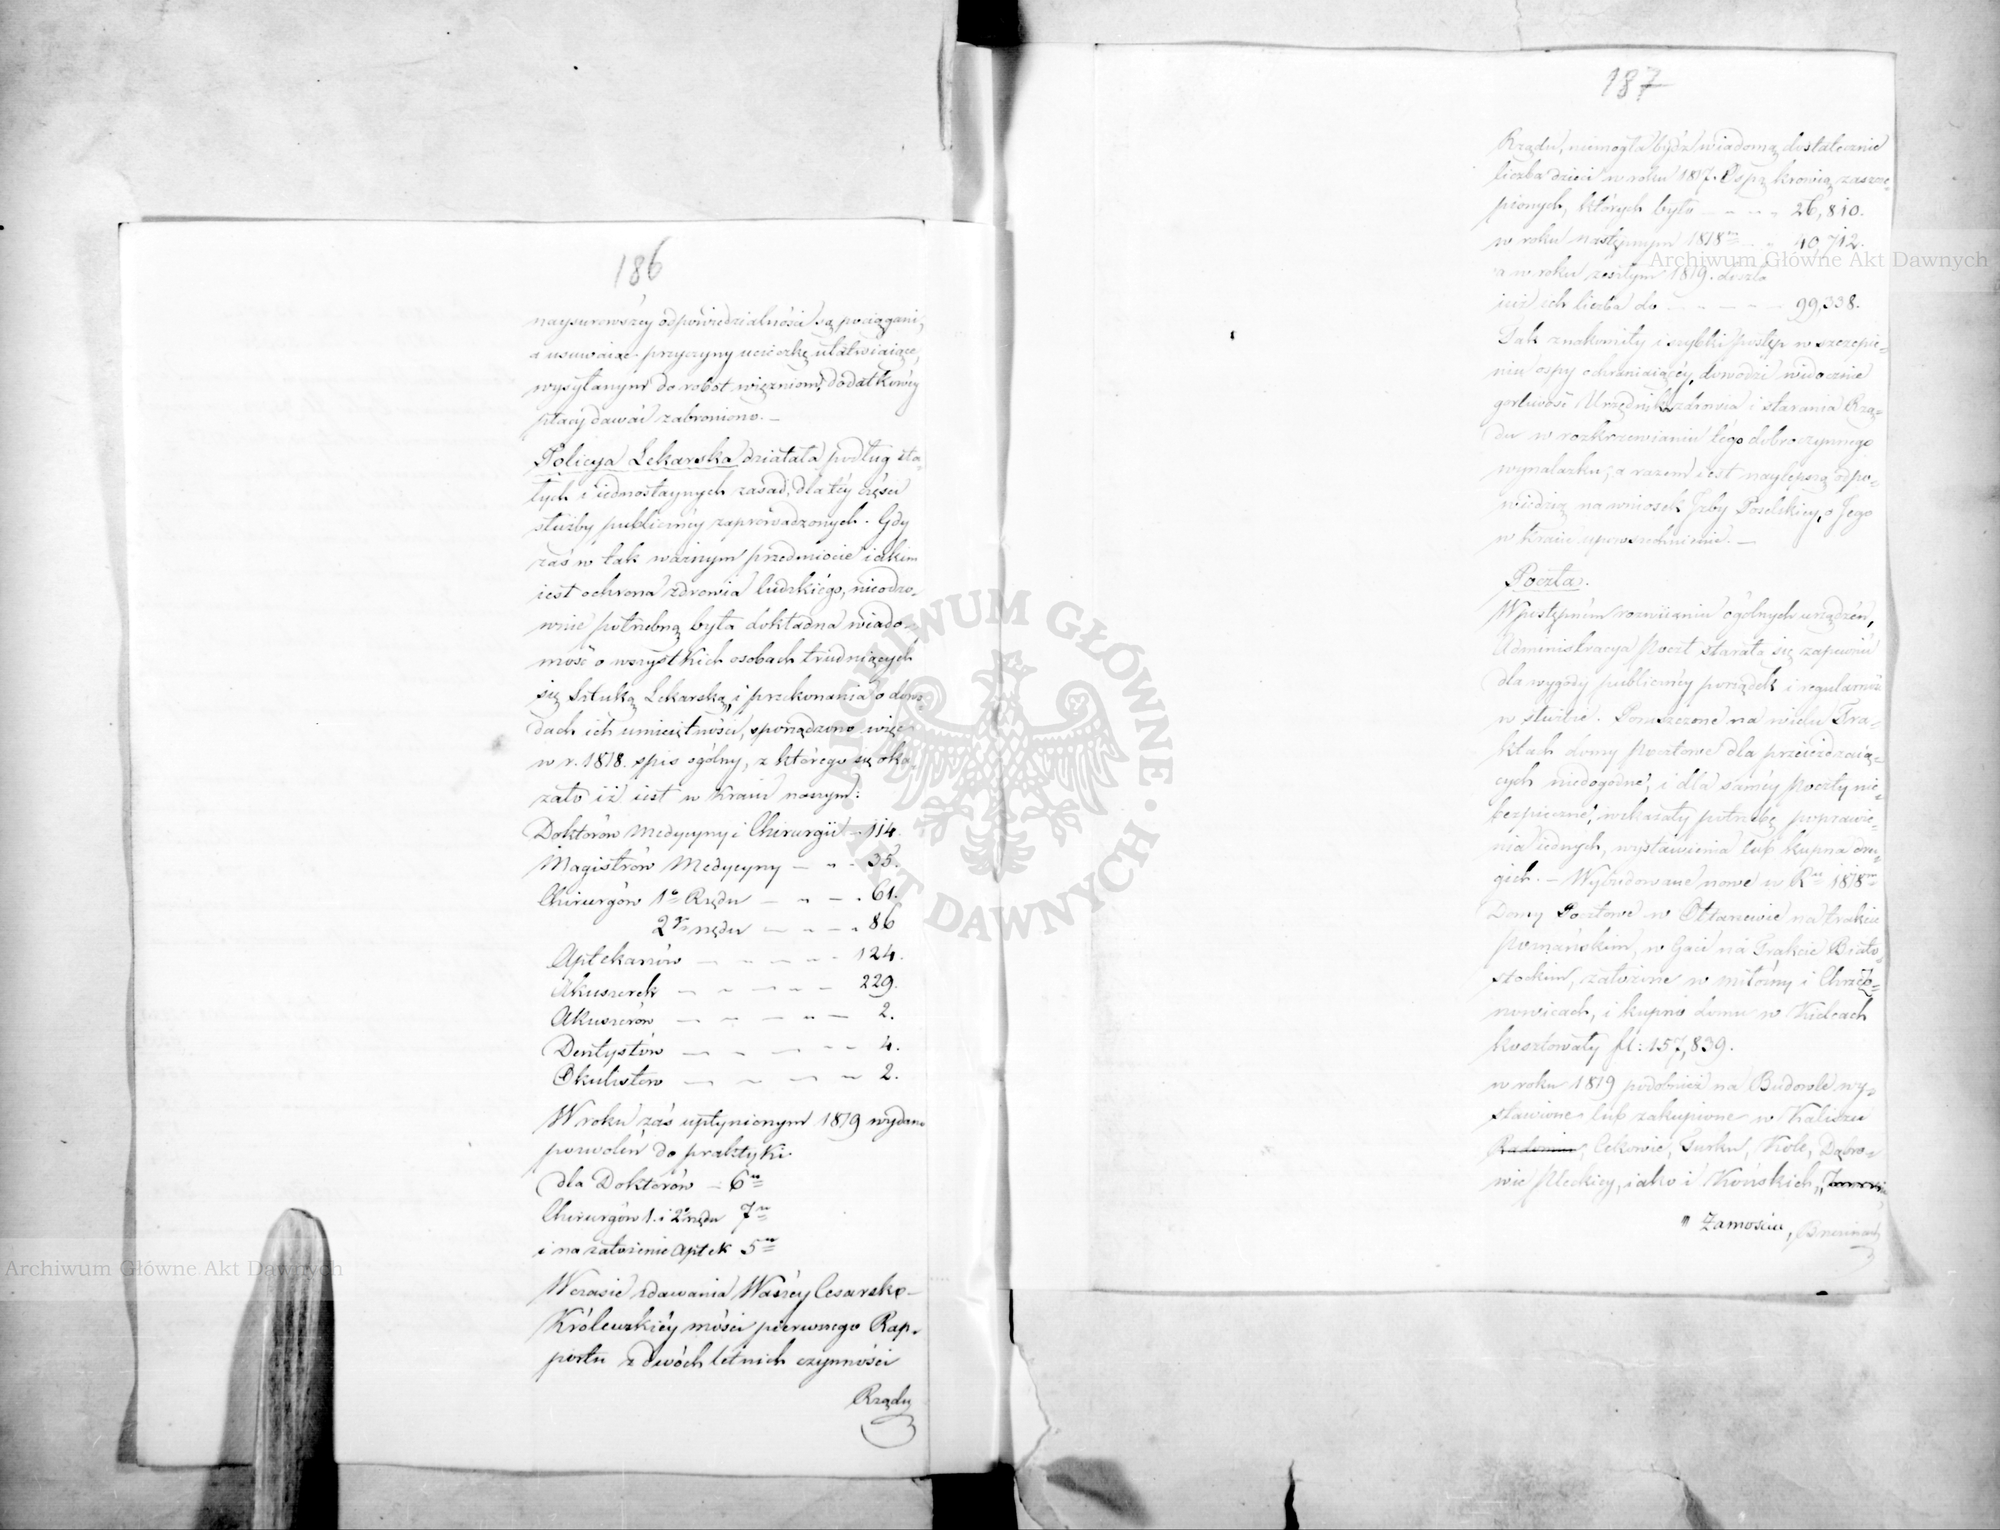 186
naysurowszéy odpowiedzialności są pociągani,
a usuwaiąc przyczyny ucieczkę ułatwiaiące,
wysyłanym do robót więzniom, dodatkowéy
płacy dawać zabroniono. —
Policya Lekarska działała podług sta-
łych i iednostaynych zasad, dla téy części
służby publicznéy zaprowadzonych. Gdy
zaś w tak ważnym przedmiocie iakim
iest ochrona zdrowia ludzkiégo, nieodzo-
wnie potrzebną była dokładna wiado-
mość o wszystkich osobach trudniących
się Sztuką Lekarską, i przekonania o dowo-
dach ich umieiętności, sporządzono więc
w r. 1818. spis ogólny, z którego się oka-
zało iż iest w Kraiu naszym:
Doktorów Medycyny i Chirurgii — 114.
Magistrów Medycyny — „ — 35.
Chirurgów 1o Rzędu — „ — . 61.
2go rzędu — „ — „ 86
Aptekarzów — „ — „ — 124.
Akuszerek — „ — „ — 229.
Akuszerów — „ — „ — 2.
Dentystów — „ — „ — 4.
Okulistów — „ — „ — 2.
W roku zaś upłynionym 1819 wydano
pozwoleń do praktyki
dla Doktorów — 6m
Chirurgów 1. i 2o rzędu 7m
i na założenie Aptek 5m
W czasie zdawania Waszéy Cesarsko-
Królewskiéy Mości pierwszego Rap-
portu z dwóch letnich czynności
Rządu
187
Rządu, niemogła bydź wiadomą dostatecznie
liczba dzieci w roku 1817. Ospą krowią zaszcze-
pionych, których było — „ — „ 26,810.
w roku następnym 1818m — „ 40,712.
a w roku zeszłym 1819. doszła
iuż ich liczba do — — — — 99,338.
Tak znakomity i szybki postęp w szczepie-
niu ospy ochraniaiącéy, dowodzi widocznie
gorliwość Urzędnik. zdrowia i starania Rzą-
du w rozkrzewianiu tégo dobroczynnego
wynalazku; a razem iest naylepszą odpo-
wiedzią na wniosek Izby Poselskiey, o Jego
w Kraiu upowszechnienie. —
Poczta.
W postępném rozwiianiu ogólnych urządzeń,
Administracya Poczt starała się zapewnić
dla wygody publicznéy porządek i regularność
w służbie. Poruszczone na wielu Tra-
ktach domy pocztowe dla przeieżdzaią-
cych niedogodne, i dla saméy Poczty nie-
bezpieczne, wskazały potrzebę poprawie-
nia iednych, wystawienia lub kupna dru-
gich. — Wybudowane nowe w Rm 1818m
Domy Pocztowe w Ołtarzewie na trakcie
poznańskim, w Gaci na Trakcie Biało-
stockim, założone w Miłosny i Chrzą-
nowicach, i kupno domu w Kielcach
kosztowały fl: 157,839.
w roku 1819 podobnież na Budowle wy-
stawione lub zakupione w Kaliszu
Radomiu, Cekowie, Turku, Kole, Dąbro-
wie Pleckiey, iako i Końskich,
„ Zamościu, Brzezinach
Archiwum Główne Akt Dawnych
Archiwum Główne Akt Dawnych
ARCHIWUM GŁÓWNE · AKT DAWNYCH ·